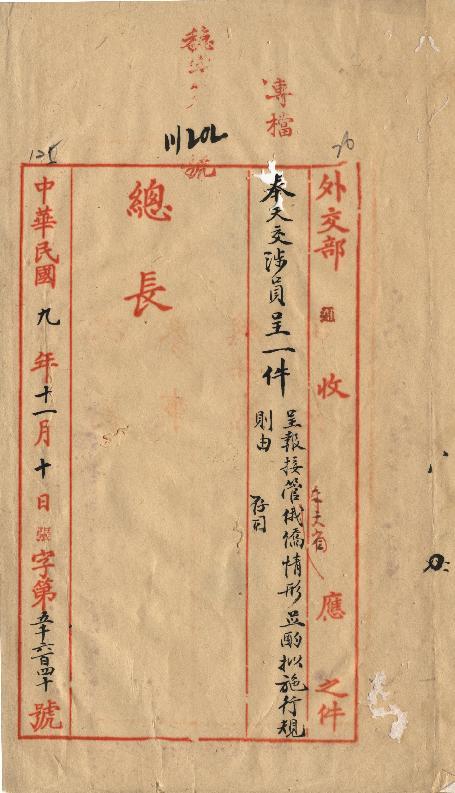 專檔
11202
號
76
125
外交部 收 應 之件
奉天省
奉天交涉員呈一件
呈報接管俄僑情形並酌拟施行規
則由 存司
總長
中華民國九年十一月十日張字第五千六百四十號